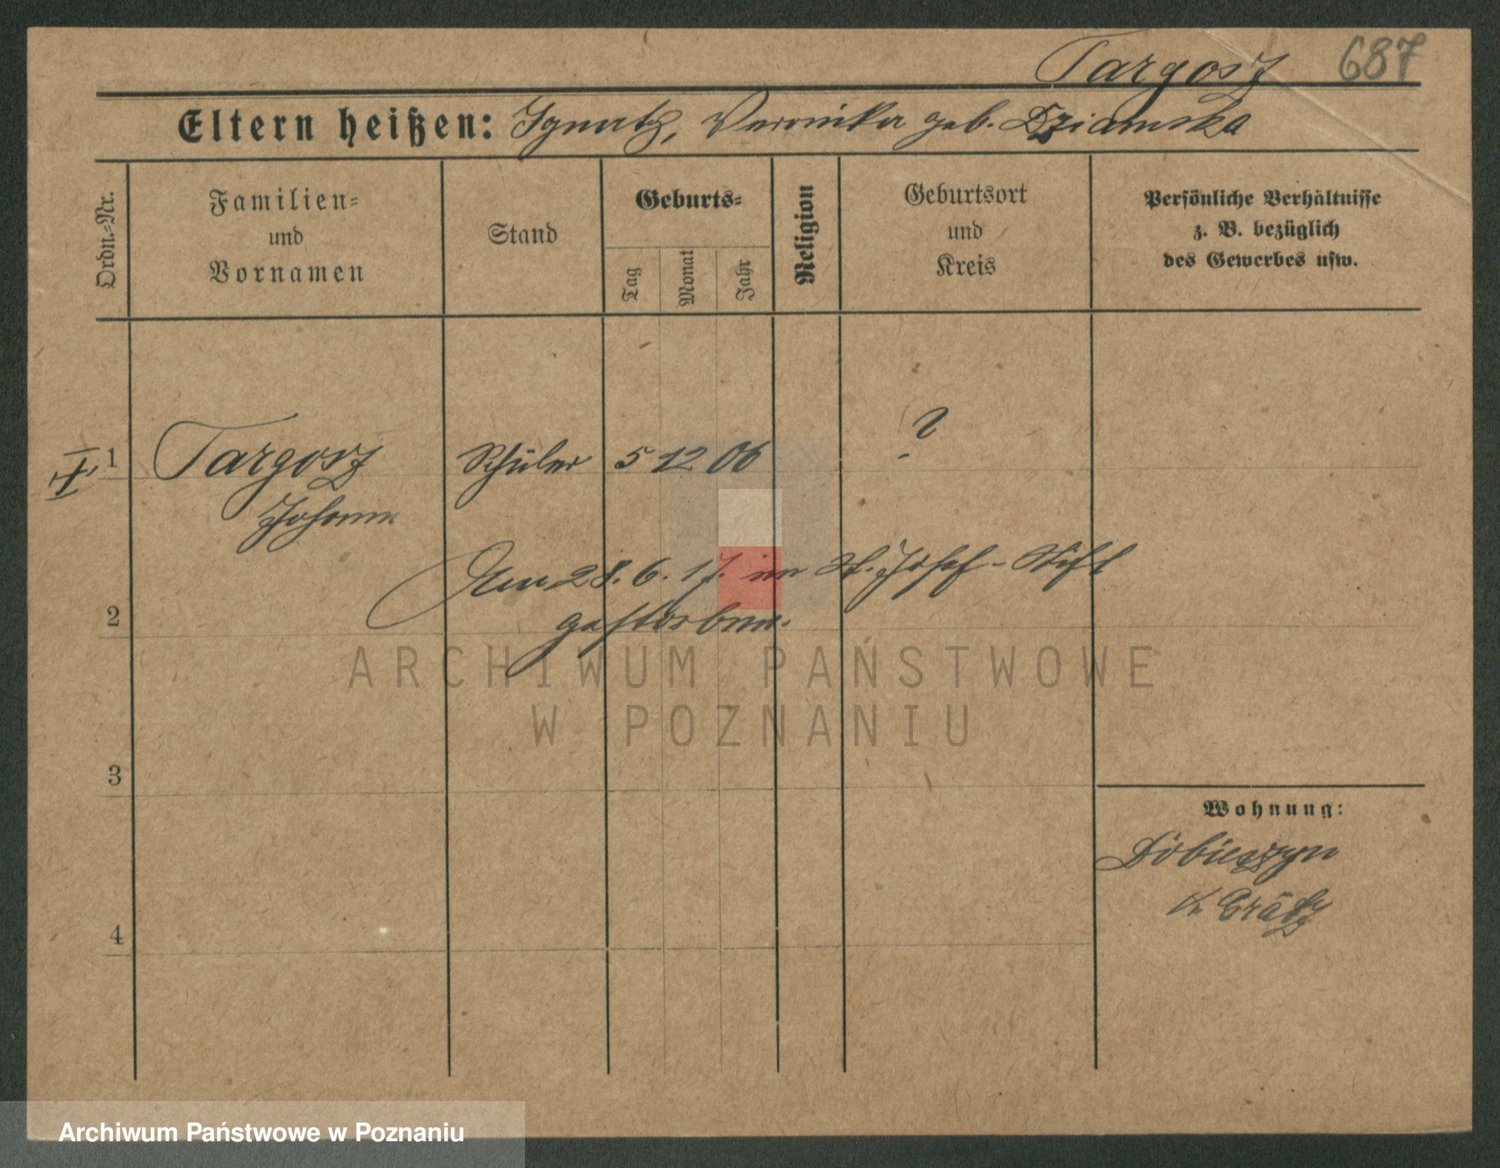 Targosz 687
Eltern heißen: Ignatz, Veronika geb. Dziamska
Ordn.-Nr.
Familien-
und
Vornamen
Stand
Geburts-
Tag
Monat
Jahr
Religion
Geburtsort
und
Kreis
Persönliche Verhältnisse
z. B. bezüglich
des Gewerbes usw.
1 Targosz Schüler 5 12 06 ?
Johann
Am 28. 6. 17. im St. Josef-Stift
2 gestorben.
ARCHIWUM PAŃSTWOWE
W POZNANIU
3
Wohnung:
Dobieszyn
4 K Grätz
Archiwum Państwowe w Poznaniu